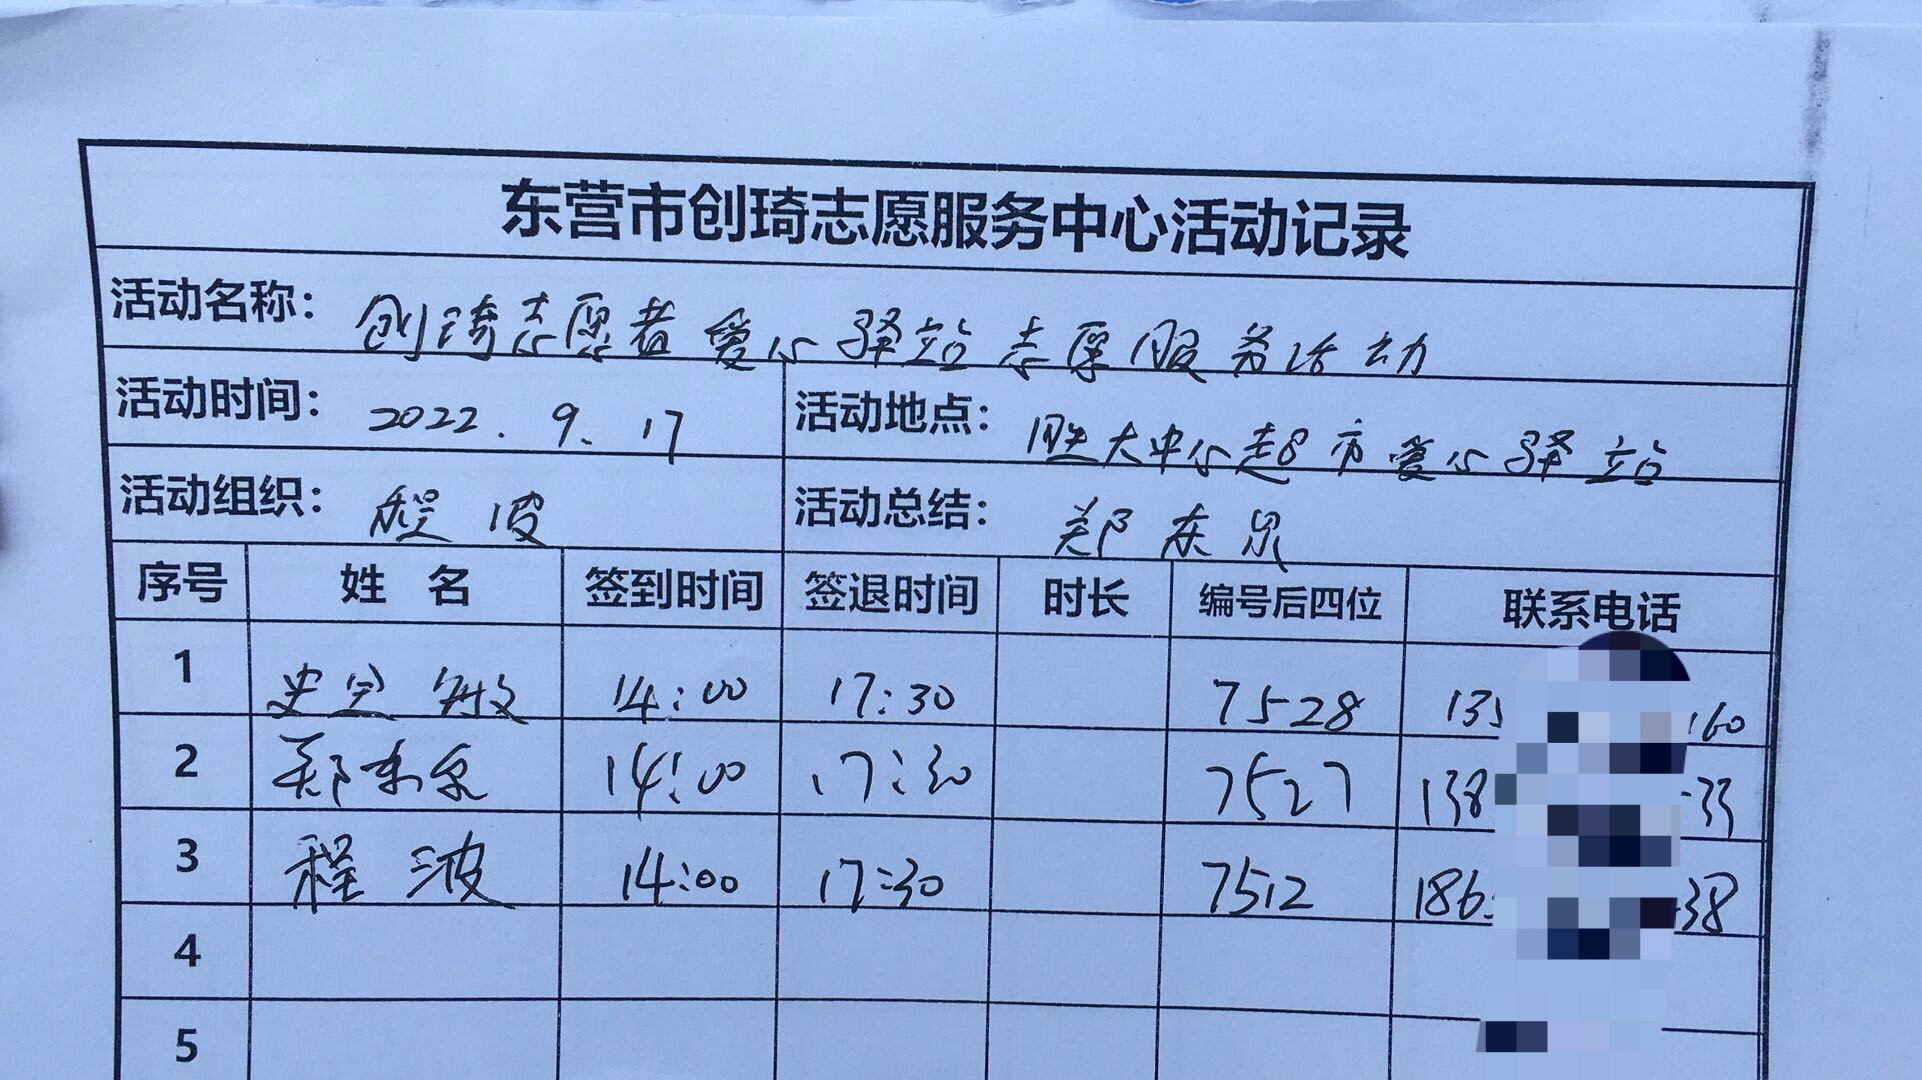 东营市创琦志愿服务中心活动记录
活动名称： 创琦志愿者爱心驿站志愿服务活动
活动时间： 2022.9.17 活动地点： 胜大中心超市爱心驿站
活动组织： 程波 活动总结： 郑东泉
序号 姓名 签到时间 签退时间 时长 编号后四位 联系电话
1 史宝敏 14:00 17:30 7528 135 160
2 郑东泉 14:00 17:30 7527 138 33
3 程波 14:00 17:30 7512 186 38
4
5